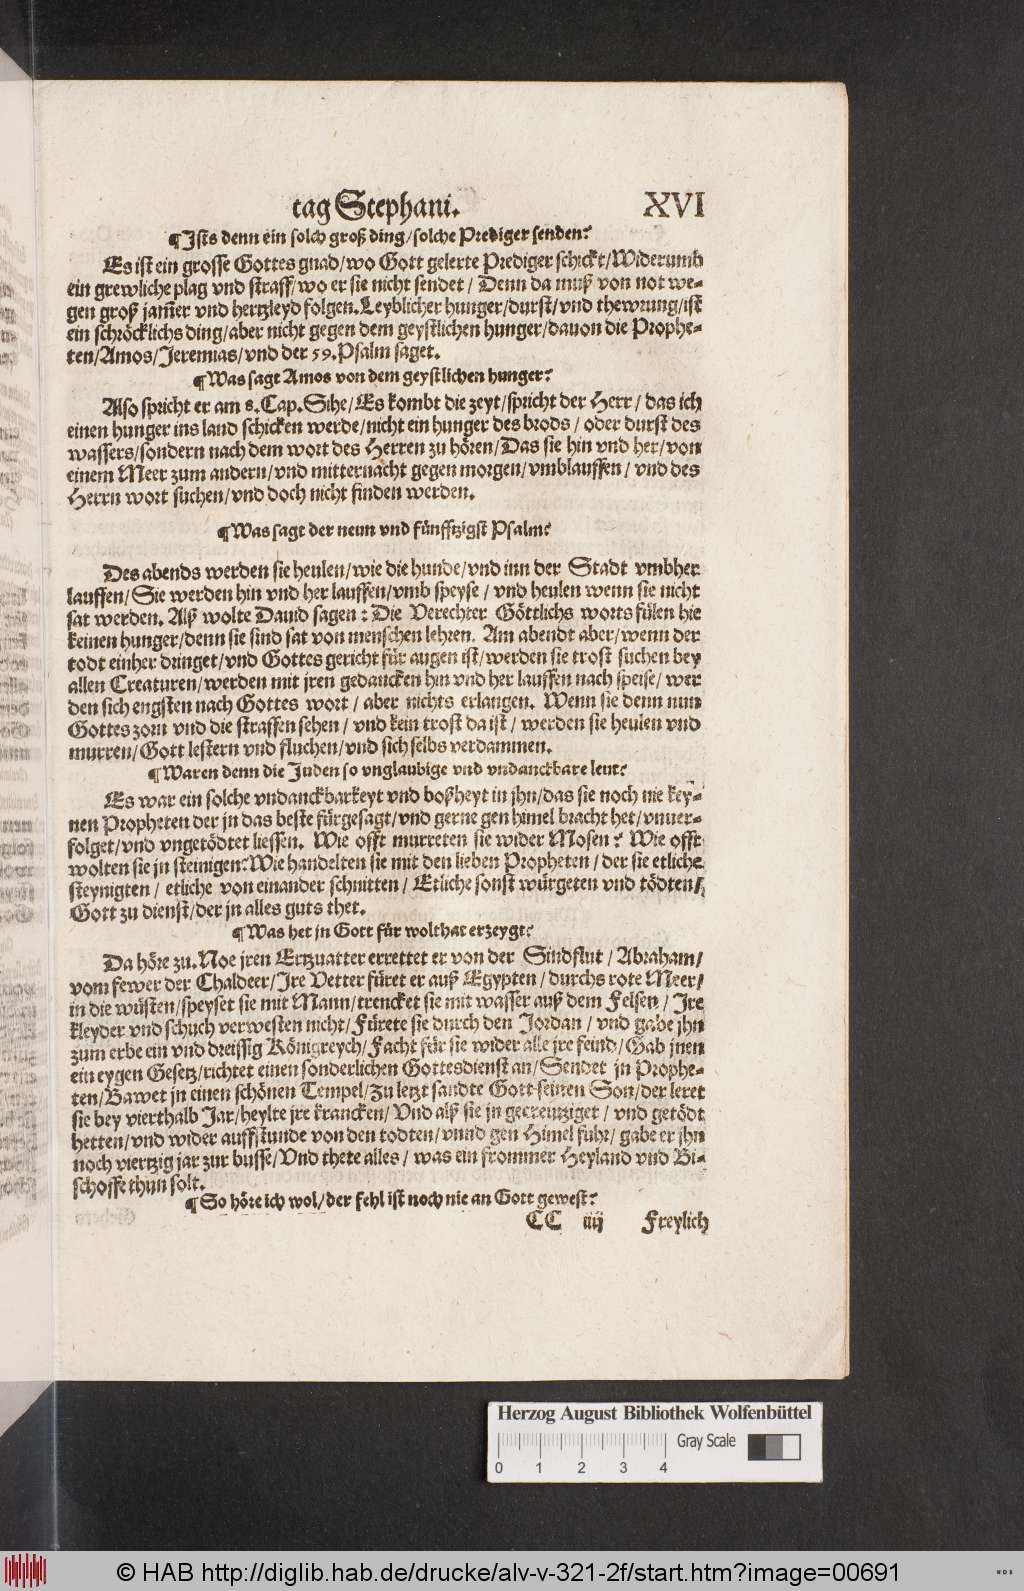 tag Stephani. XVI
¶ Ists denn ein solch groß ding/solche Prediger senden?
Es ist ein grosse Gottes gnad/wo Gott gelerte Prediger schickt/Widerumb
ein grewliche plag vnd straff/wo er sie nicht sendet / Denn da muß von not we-
gen groß jam̃er vnd hertzleyd folgen. Leyblicher hunger/durst/vnd thewrung/ist
ein schröcklichs ding/aber nicht gegen dem geystlichen hunger/dauon die Prophe-
ten/Amos/Jeremias/vnd der 59. Psalm saget.
¶ Was sagt Amos von dem geystlichen hunger?
Also spricht er am 8. Cap. Sihe/Es kombt die zeyt/spricht der Herr / das ich
einen hunger ins land schicken werde/nicht ein hunger des brods / oder durst des
wassers/sondern nach dem wort des Herren zu hören/Das sie hin vnd her/von
einem Meer zum andern/vnd mitternacht gegen morgen/vmblauffen / vnd des
Herrn wort suchen/vnd doch nicht finden werden.
¶ Was sagt der neun vnd fünfftzigst Psalm?
Des abends werden sie heulen/wie die hunde/vnd inn der Stadt vmbher
lauffen/Sie werden hin vnd her lauffen/vmb speyse / vnd heulen wenn sie nicht
sat werden. Alß wolte Dauid sagen: Die Verechter Göttlichs worts fülen hie
keinen hunger/denn sie sind sat von menschen lehren. Am abendt aber/wenn der
todt einher dringet/vnd Gottes gericht für augen ist/werden sie trost suchen bey
allen Creaturen/werden mit jren gedancken hin vnd her lauffen nach speise/ wer
den sich engsten nach Gottes wort / aber nichts erlangen. Wenn sie denn nun
Gottes zorn vnd die straffen sehen / vnd kein trost da ist / werden sie heulen vnd
murren/Gott lestern vnd fluchen/vnd sich selbs verdammen.
¶ Waren denn die Juden so vnglaubige vnd vndanckbare leut?
Es war ein solche vndanckbarkeyt vnd boßheyt in jhn/das sie noch nie key-
nen Propheten der jn das beste fürgesagt/vnd gerne gen himel bracht het/vnuer-
folget/vnd vngetödtet liessen. Wie offt murreten sie wider Mosen? Wie offt
wolten sie jn steinigen? Wie handelten sie mit den lieben Propheten / der sie etliche
steynigten / etliche von einander schnitten / Etliche sonst würgeten vnd tödten/
Gott zu dienst/der jn alles guts thet.
¶ Was het jn Gott für wolthat erzeygt?
Da höre zu. Noe jren Ertzuatter errettet er von der Sindflut / Abraham/
vom fewer der Chaldeer/Jre Vetter füret er auß Egypten / durchs rote Meer/
in die wüsten/speyset sie mit Mann/trencket sie mit wasser auß dem Felsen / Jre
kleyder vnd schuch verwesten nicht/Fürete sie durch den Jordan / vnd gabe jhn
zum erbe ein vnd dreissig Königreych/Facht für sie wider alle jre feind/Gab jnen
ein eygen Gesetz/richtet einen sonderlichen Gottesdienst an/Sendet jn Prophe-
ten/Bawet jn einen schönen Tempel/Zu letzt sandte Gott seinen Son/der leret
sie bey vierthalb Jar/heylte jre krancken/Vnd alß sie jn gecreutziget / vnd getödt
hetten/vnd wider auffstunde von den todten/vnnd gen Himel fuhr/ gabe er jhn
noch viertzig jar zur busse/Vnd thete alles / was ein frommer Heyland vnd Bi-
schoffe thun solt.
¶ So höre ich wol/der fehl ist noch nie an Gott gewest?
CC iiij Freylich
Herzog August Bibliothek Wolfenbüttel
Gray Scale
0 1 2 3 4
© HAB http://diglib.hab.de/drucke/alv-v-321-2f/start.htm?image=00691